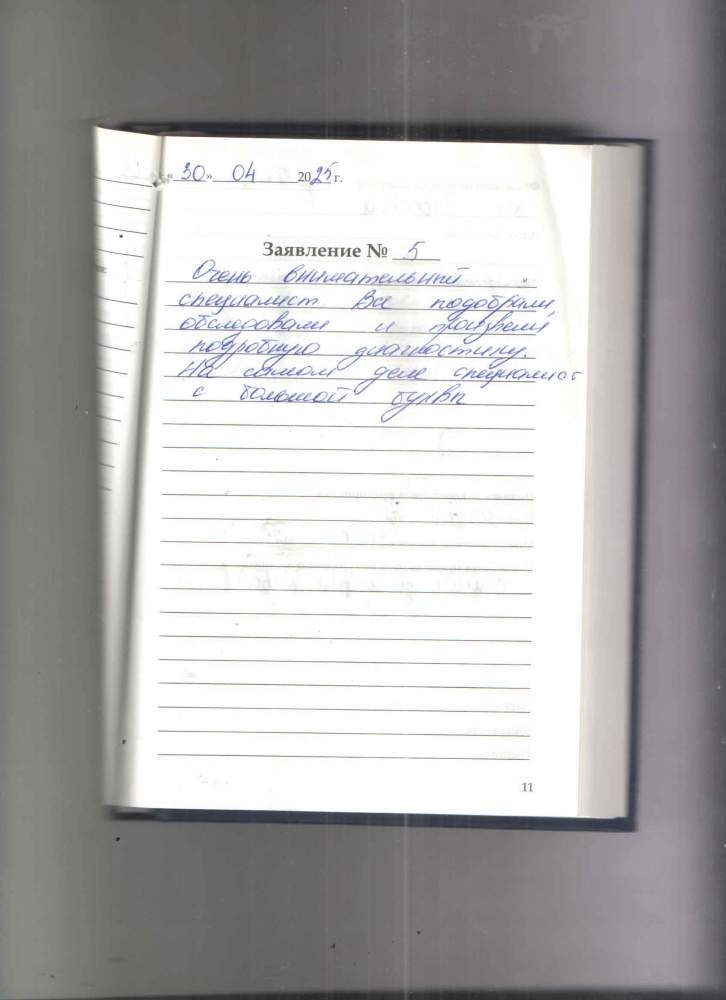 « 30 » 04 2025 г.
Заявление № 5
Очень внимательный
специалист все подобрали,
обследовали и провели
подробную диагностику.
На самом деле специалист
с большой буквы
11